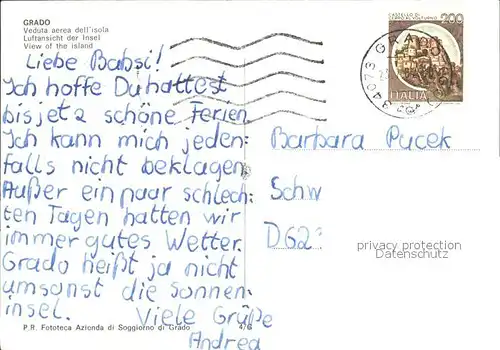 GRADO
Veduta aerea dell'isola
Luftansicht der Insel
View of the island
Liebe Babsi!
Ich hoffe Du hattest
bis jetz schöne Ferien
Ich kann mich jeden=
falls nicht beklagen
Außer ein paar schlech=
ten Tagen hatten wir
immer gutes Wetter.
Grado heißt ja nicht
umsonst die sonnen=
insel. Viele Grüße
Andrea
P.R. Fototeca Azienda di Soggiorno di Grado
4/G
200
ITALIA
34073 GRADO
Barbara Pucek
Schw
D62
privacy protection
Datenschutz